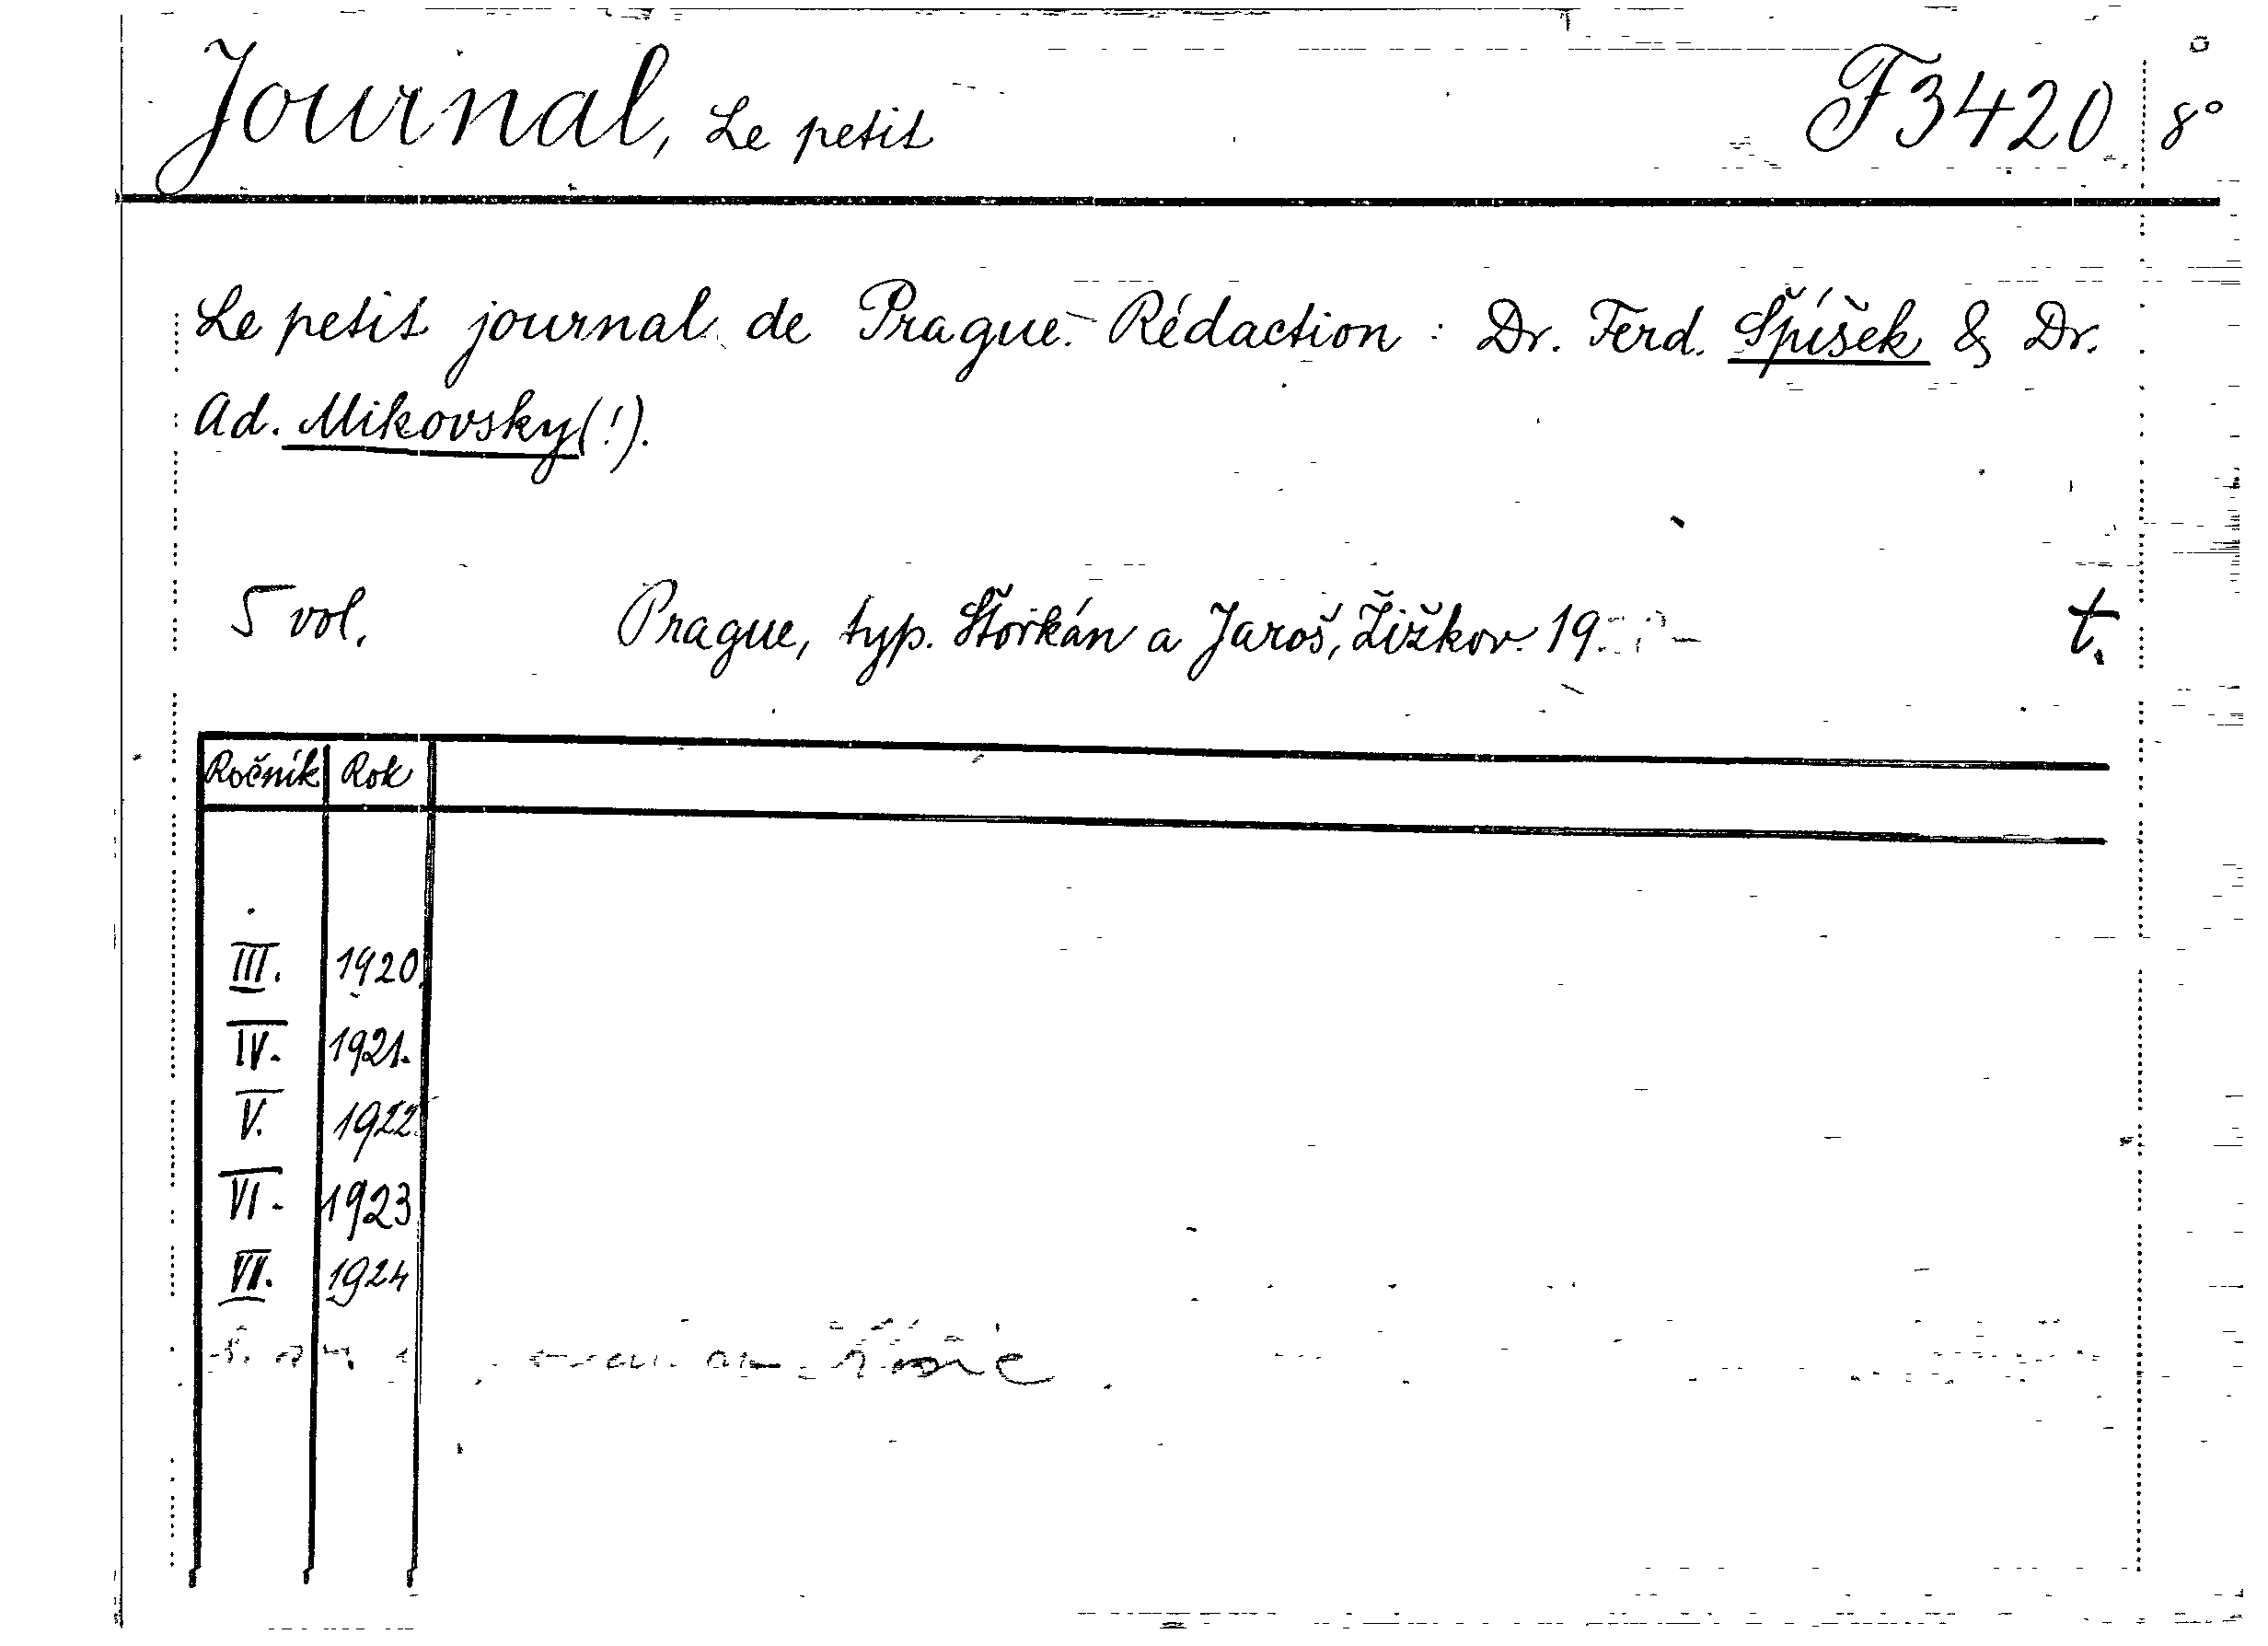 Journal, Le petit F 3420 8°
Le petit journal de Prague.- Rédaction : Dr. Ferd. Špíšek & Dr.
Ad. Mikovsky (!).
5 vol. Prague, typ. Štorkán a Jaroš, Žižkov. 19 t.
Ročník Rok
III. 1920.
IV. 1921.
V. 1922.
VI. 1923
VII. 1924